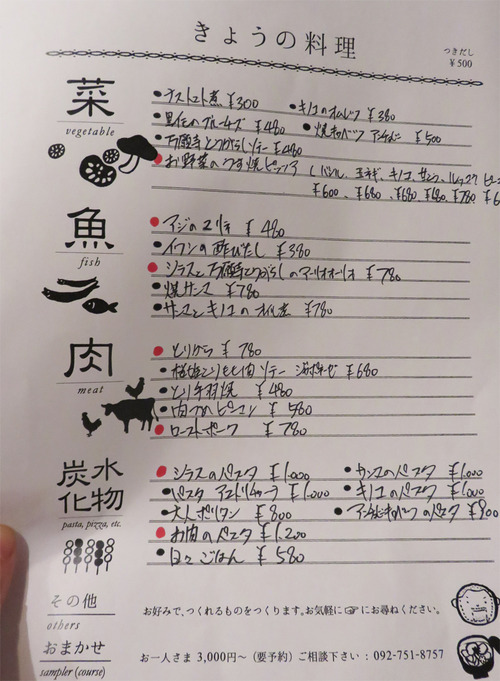 きょうの料理
つきだし
¥500
菜
vegetable
ナストマト煮 ¥300
キノコのオムレツ ¥380
¥480
焼キャベツ アンチョビ ¥500
万願寺とうがらしソテー ¥480
お野菜のうす焼ピッツァ
¥600、¥680、¥680、¥680、¥780
魚
fish
アジの ¥480
イワシの酢びたし ¥380
シラスと万願寺とうがらしのアーリオオーリオ ¥780
焼サンマ ¥780
サンマとキノコのオイル煮 ¥780
肉
meat
とりから ¥780
とりもも肉ソテー ¥680
とり手羽焼 ¥480
¥580
ローストポーク ¥780
炭水化物
pasta, pizza, etc.
シラスのパスタ ¥1.000
サンマのパスタ ¥1.000
パスタ アマトリチャーナ ¥1.000
キノコのパスタ ¥1.000
大人ポリタン ¥800
アンチョビキャベツのパスタ ¥900
お肉のパスタ ¥1.200
日々ごはん ¥580
その他
others
お好みで、つくれるものをつくります。お気軽に☞にお尋ねください。
おまかせ
sampler (course)
お一人さま 3,000円〜（要予約）ご相談下さい : 092-751-8757